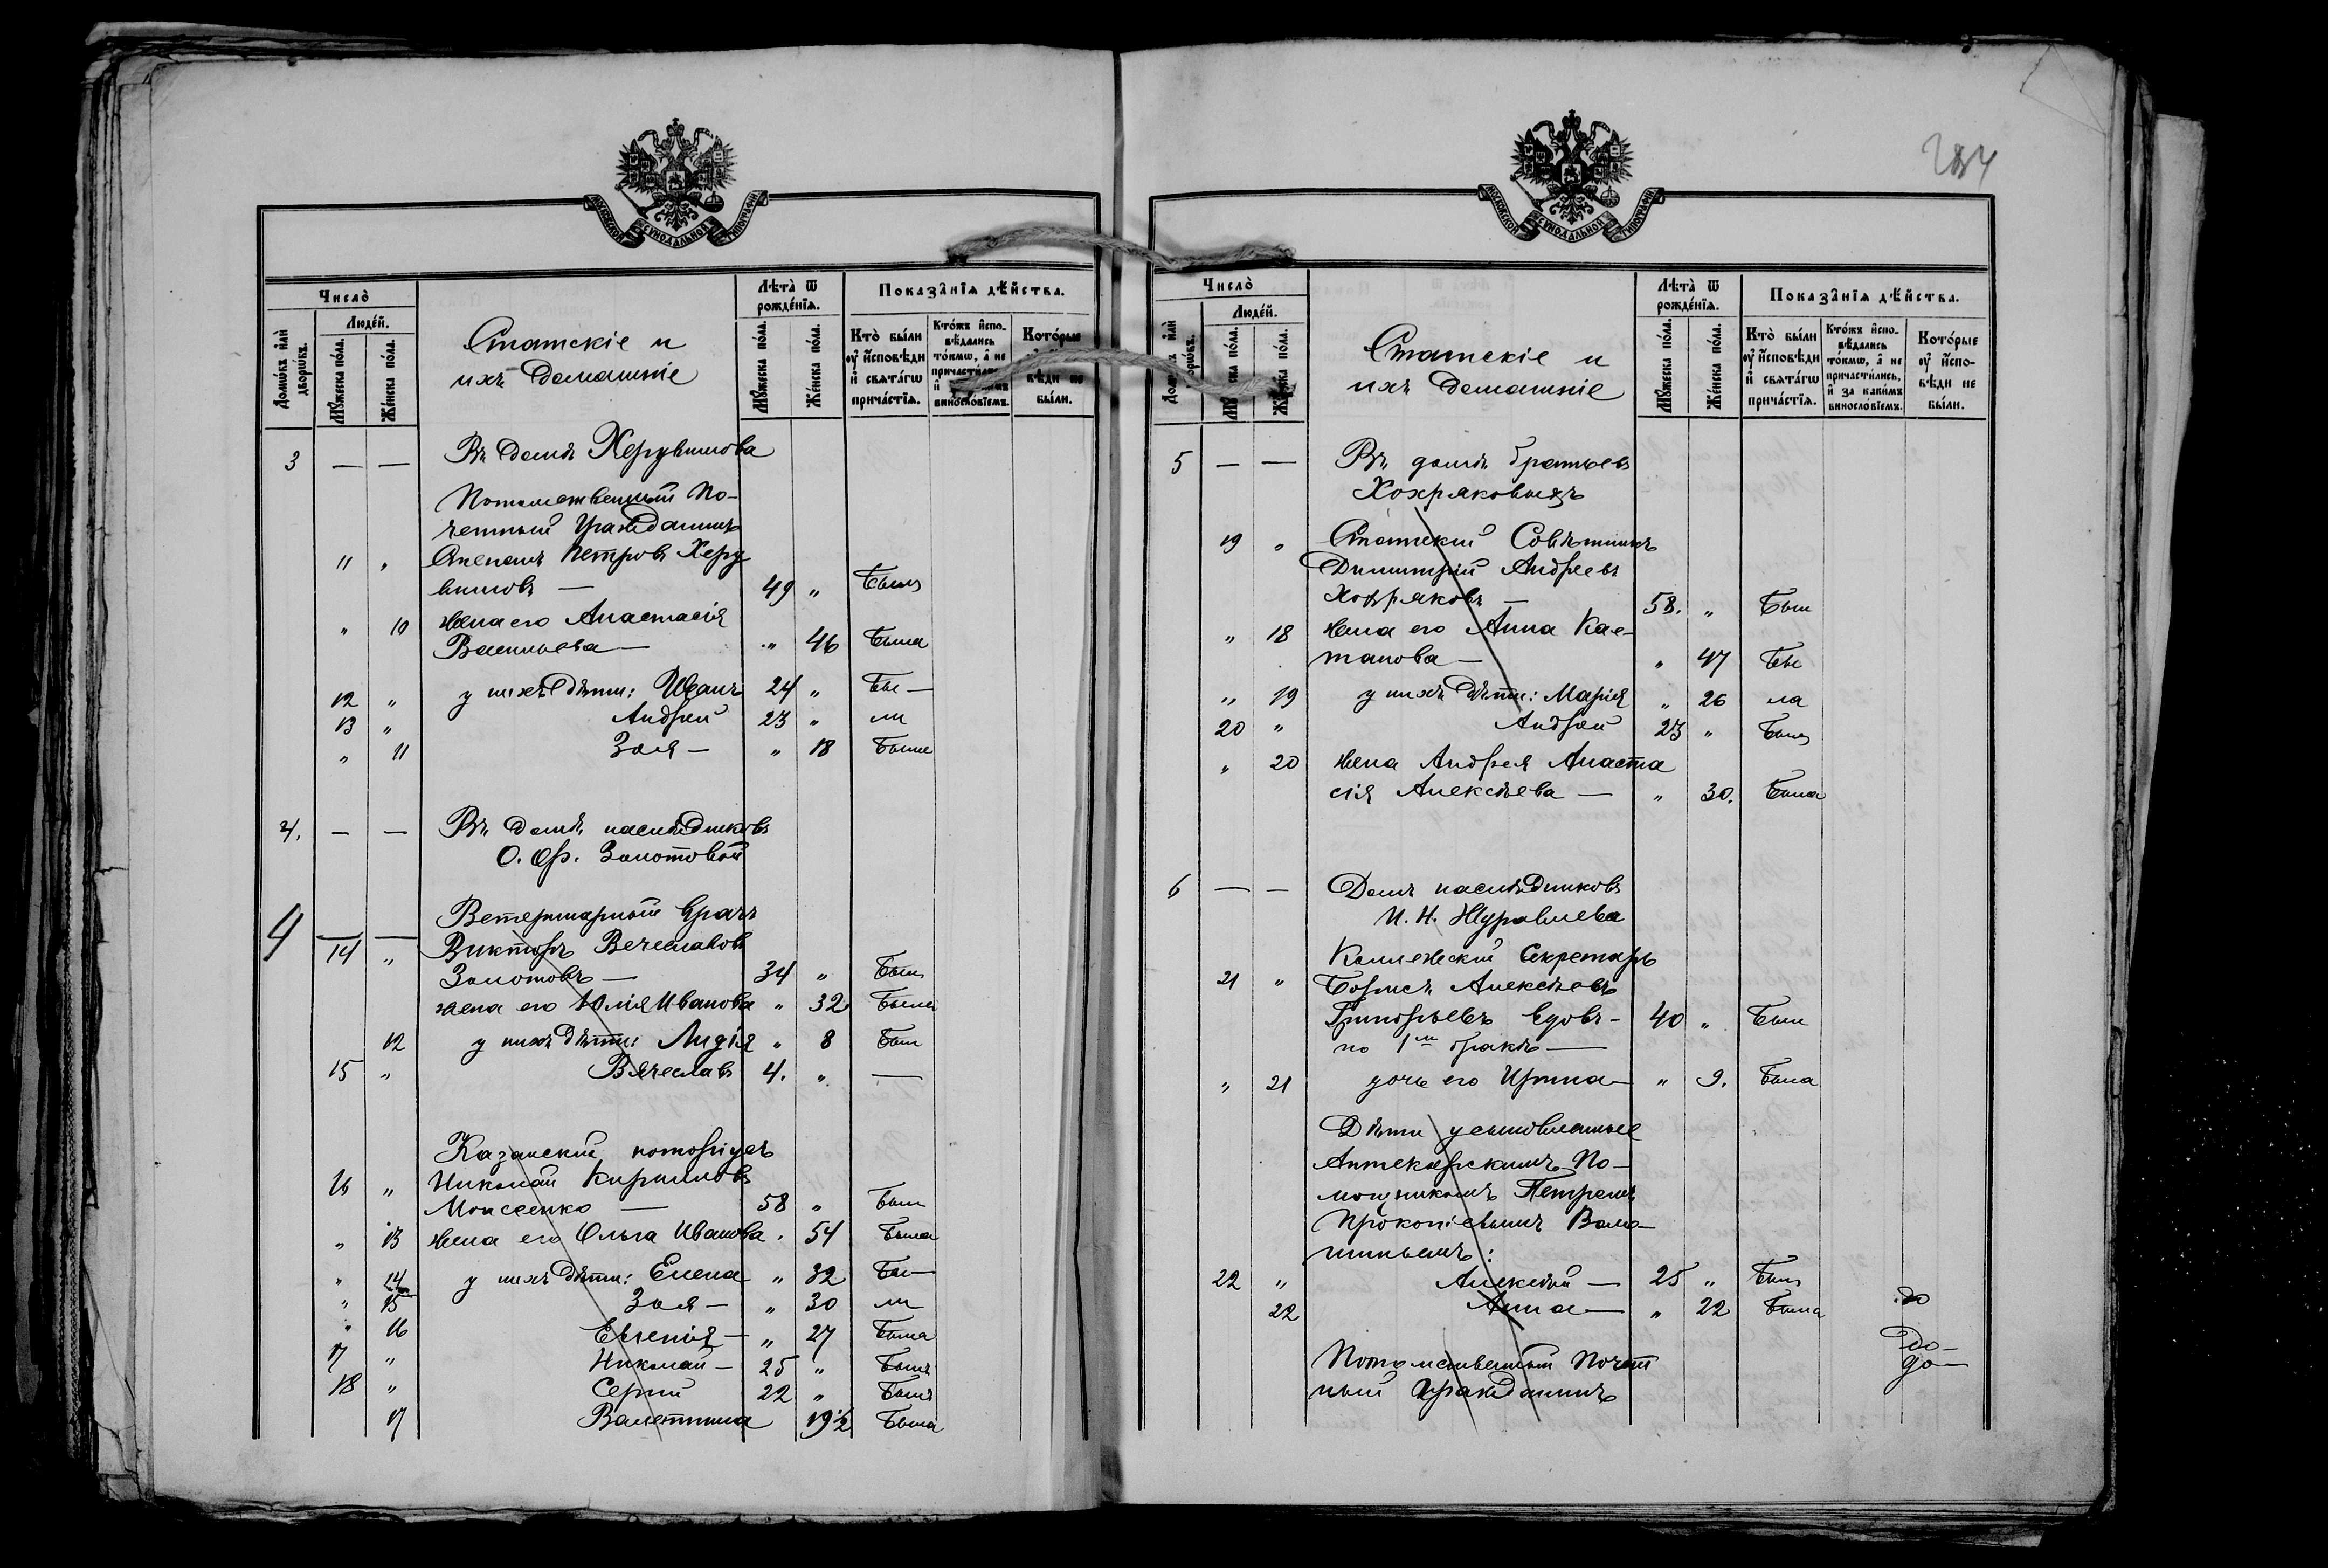 МОСКОВСКОЙ СУНОДАЛЬНОЙ ТИПОГРАФІИ
Число̀
Домѡвъ и҆лѝ дворѡвъ.
Люде́й.
Мꙋ́жеска по́ла.
Же́нска по́ла.
Статскіе и
ихъ домашніе
Лѣта̀ ѿ рожде́нїѧ.
Мꙋ́жеска по́ла.
Же́нска по́ла.
Показа̑нїѧ дѣ́йства.
Кто̀ бы́ли ᲂу҆ и҆сповѣди и҆ свѧта́гѡ прича́стїѧ.
Кто́жъ и҆спо-вѣдались то́кмѡ, а҆ не причасти́лись
винослові́емъ.
Кото́рые
вѣди не бы́ли.
3 — — Въ домѣ Херувимова
Потомственный По-
четный Гражданинъ
11 „ Степанъ Петровъ Херу
вимовъ — 49 „ Былъ
„ 10 жена его Анастасія
Васильева — „ 46 Была
12 „ у нихъ дѣти: Иванъ 24 „ Бы —
13 „ Андрей 23 „ ли
„ 11 Зоя — „ 18 Была
4. — — Въ домѣ наслѣдниковъ
О. Ѳ. Золотовой
4 — — Ветеринарный врачъ
14 „ Викторъ Вечеславовъ
Золотовъ — 34 „ Былъ
жена его Юлія Иванова „ 32 Была
12 у нихъ дѣти: Лидія „ 8 Был
15 „ Вячеславъ 4. „ —
Казанский нотаріусъ
16 „ Николай Кирилловъ
Моисеенко — 58 „ Был
„ 13 жена его Ольга Иванова „ 54 Была
„ 14 у нихъ дѣти: Елена „ 32 Бы —
„ 15 Зоя — „ 30 ли
„ 16 Евгенія — „ 27 Была
17 „ Николай — 25 „ Былъ
18 „ Сергій 22 „ Былъ
17 Валентина 19 1/2 Была
284
МОСКОВСКОЙ СУНОДАЛЬНОЙ ТИПОГРАФІИ
Число̀
Люде́й.
Же́нска по́ла.
Статскіе и
ихъ домашніе
Лѣта̀ ѿ рожде́нїѧ.
Мꙋ́жеска по́ла.
Же́нска по́ла.
Показа̑нїѧ дѣ́йства.
Кто̀ бы́ли ᲂу҆ и҆сповѣди и҆ свѧта́гѡ прича́стїѧ.
Кто́жъ и҆спо-вѣдались то́кмѡ, а҆ не причасти́лись, и҆ за каки́мъ винослові́емъ.
Кото́рые ᲂу҆ и҆спо-вѣди не бы́ли.
5 — — Въ домѣ братьевъ
Хохряковыхъ
19 „ Статский Совѣтникъ
Димитрій Андреевъ
Хохряковъ — 58. „ Был
„ 18 жена его Анна Кае-
танова — „ 47 Бы
„ 19 у нихъ дѣти: Марія „ 26 ла
20 „ Андрей 23 „ Былъ
„ 20 жена Андрея Анаста
сія Алексѣева — „ 30. Была
6 — — Домъ наслѣдниковъ
И. Н. Журавлева
Коллежскій Секретарь
21 „ Борисъ Алексѣевъ
Григорьевъ вдовъ - 40 „ Был
по 1м бракѣ —
„ 21 дочь его Ирина — „ 9. Была
Дѣти усыновленные
Аптекарскимъ По-
мощникомъ Петромъ
Прокопіевымъ
22 „ Алексѣй — 25 „ Былъ
22 Анна — „ 22 Была до
до —
Потомственный Почет до —
ный Гражданинъ